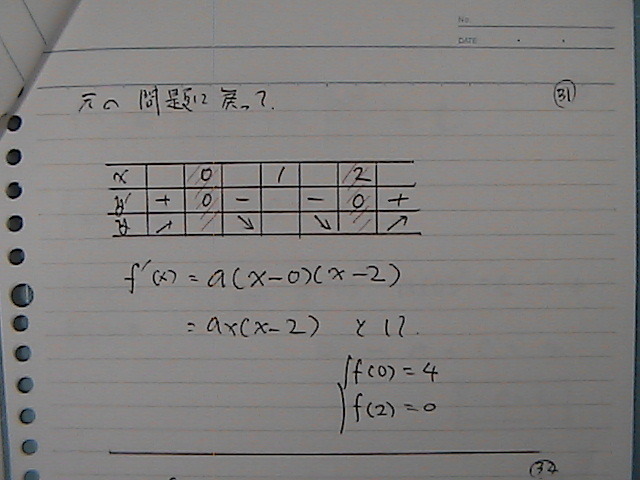 No.
DATE
元の問題に戻って.
31
x 0 1 2
y' + 0 - - 0 +
y ↗ ↘ ↘ ↗
f'(x) = a(x-0)(x-2)
= ax(x-2) として.
f(0) = 4
f(2) = 0
32